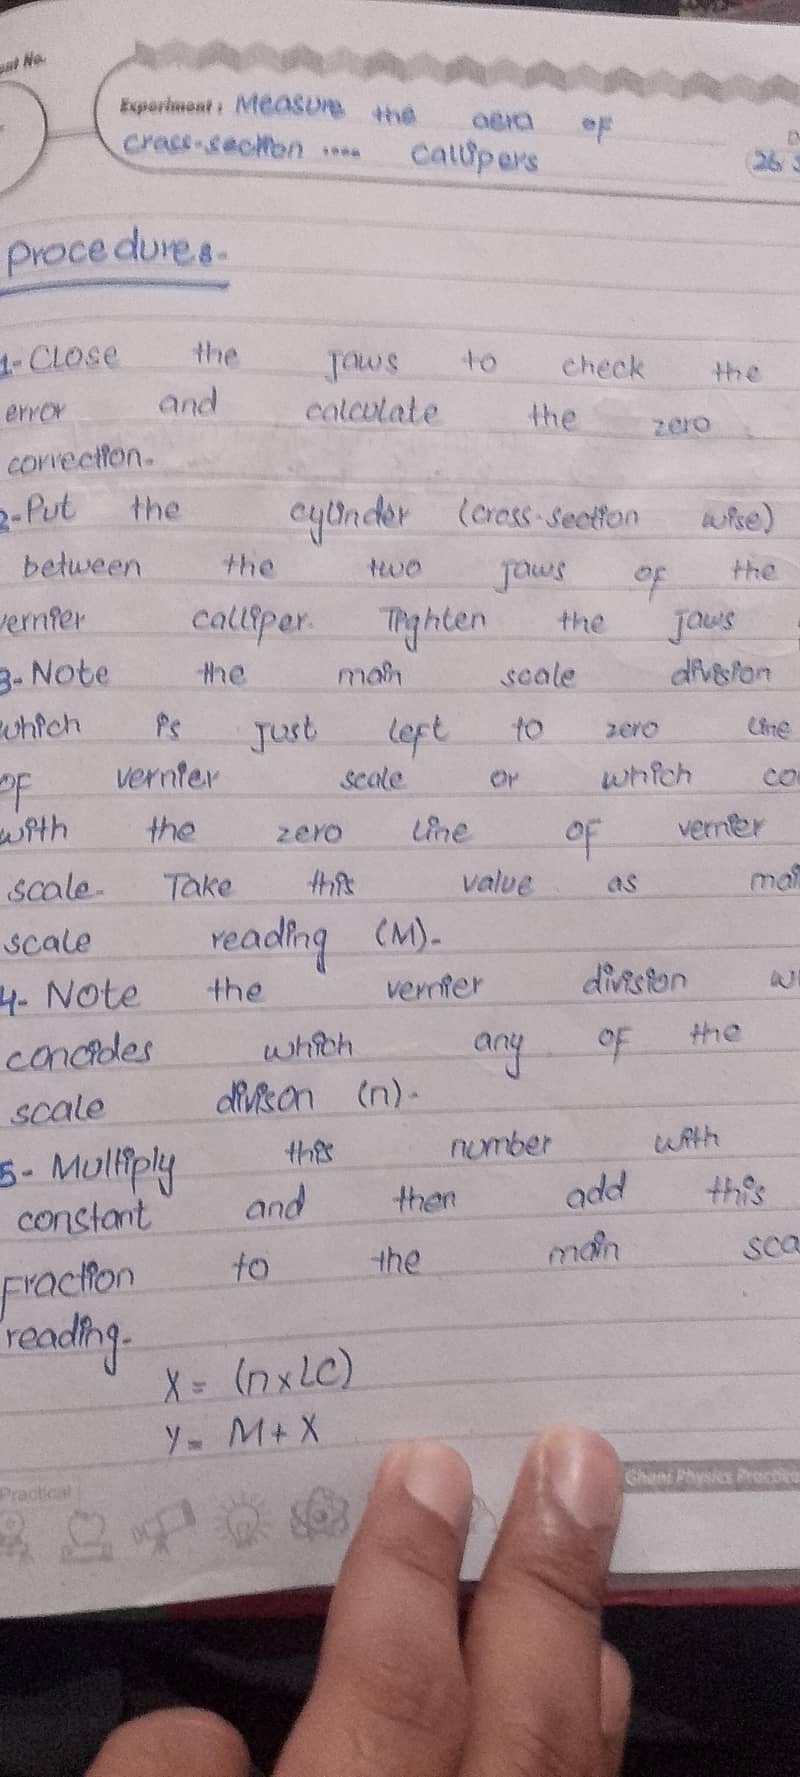 Experiment: Measure the aera of
cross-section .... callipers
26
Procedure:-
1- Close the jaws to check the
error and calculate the zero
correction.
2- Put the cylinder (cross-section wise)
between the two jaws of the
vernier calliper. Tighten the jaws
3- Note the main scale division
which is just left to zero line
of vernier scale or which
with the zero line of vernier
scale. Take this value as
scale reading (M).
4- Note the vernier division
concides which any of the
scale divison (n).
5- Multiply this number with
constant and then add this
fraction to the main
reading.
X = (n x LC)
Y = M + X
Practical
Ghani Physics